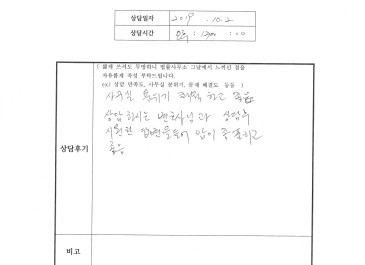 상담일자 2019 . 10. 2
상담시간
( 짧게 쓰셔도 무방하니 법률사무소 그날에서 느끼신 점을
자유롭게 작성 부탁드립니다.
ex) 상담 만족도, 사무실 분위기, 문제 해결도 등등 )
사무실 분위기 하고 좋음
상담하시는 변호사님과 상담후
시원한 답변을 들어 맘이 좋
좋음
상담후기
비고